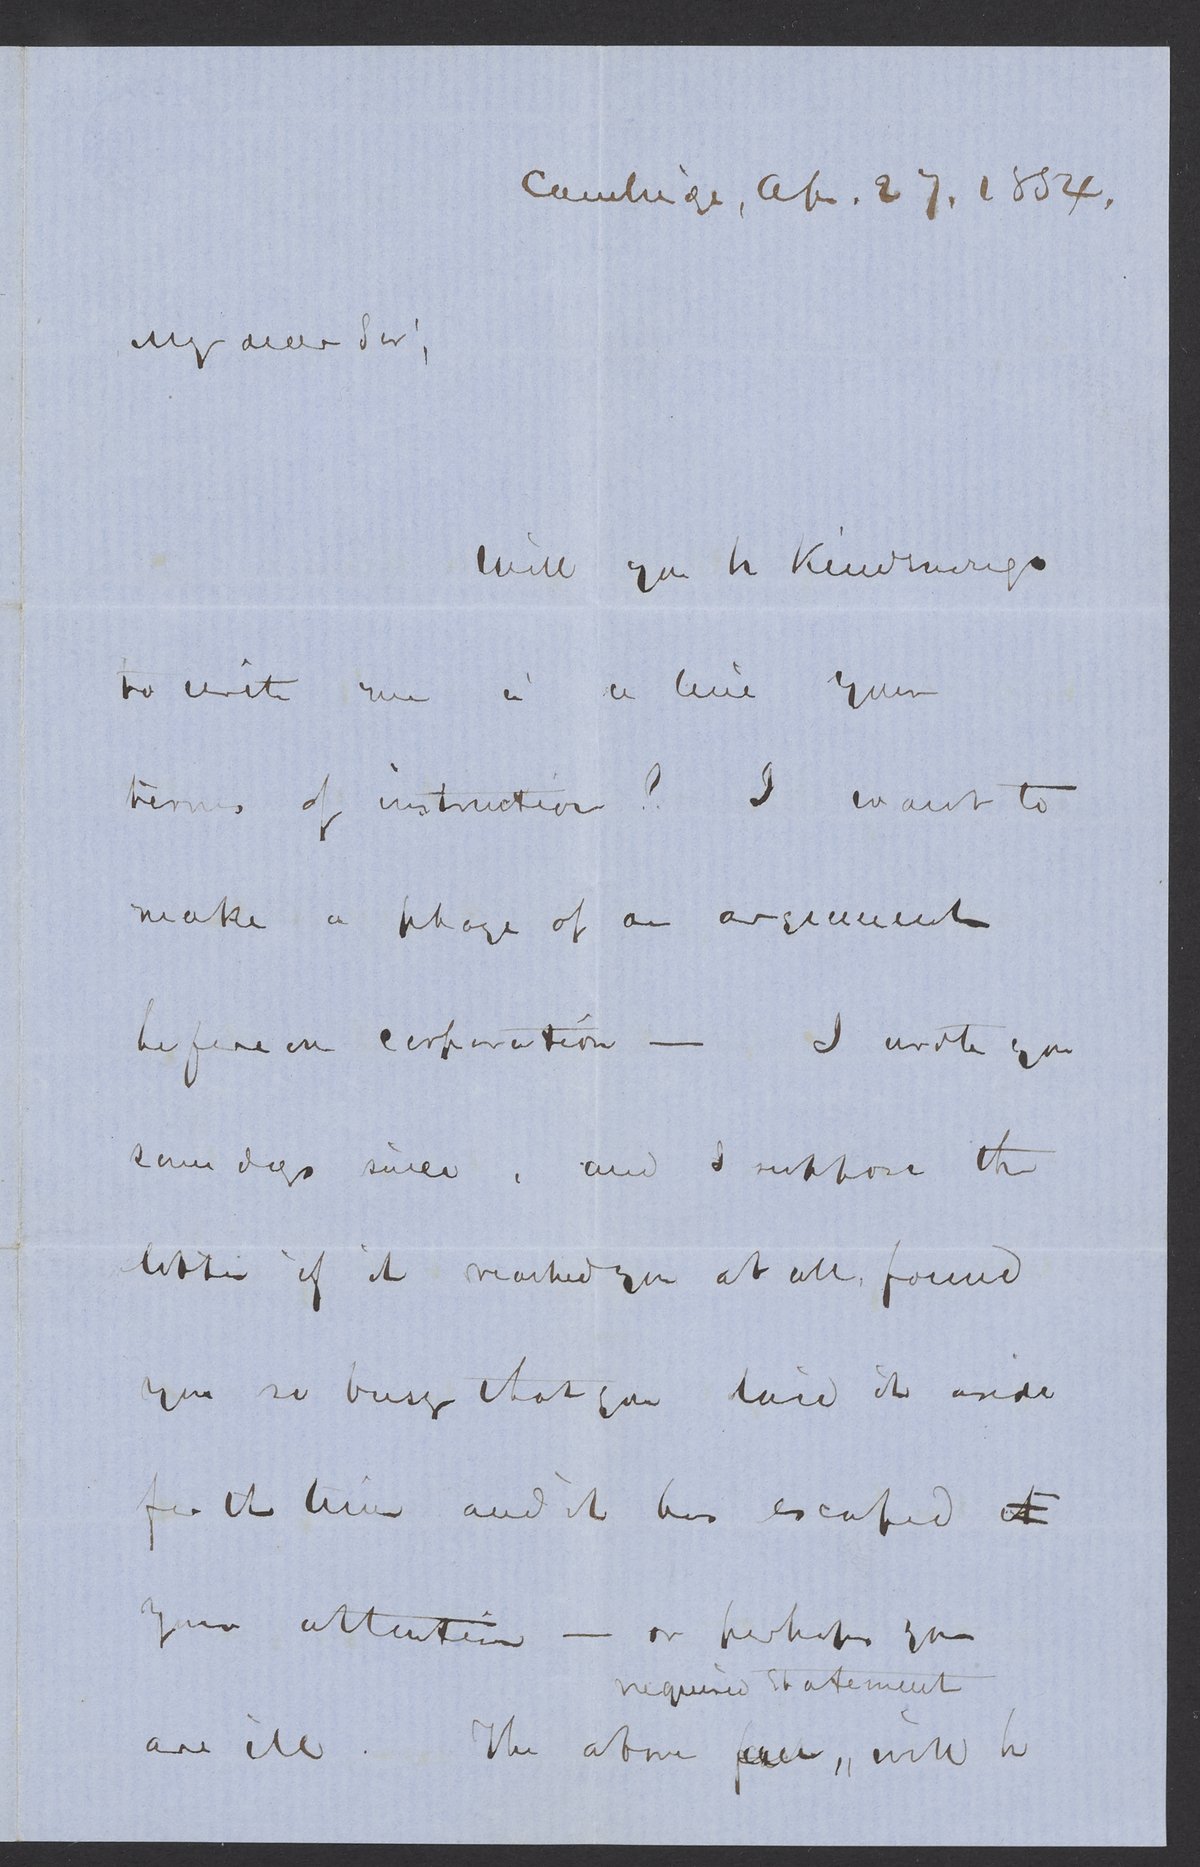 Cambridge, Ap. 27. 1854.
My dear Sir,
Will you be kind enough
to write me in a line your
terms of instruction? I want to
make a phaze of an argument
before our corporation — I wrote you
some days since, and I suppose the
letter if it reached you at all, found
you so busy that you laid it aside
for the time and it has escaped
your attention — or perhaps you
required statement
are ill. The above will be